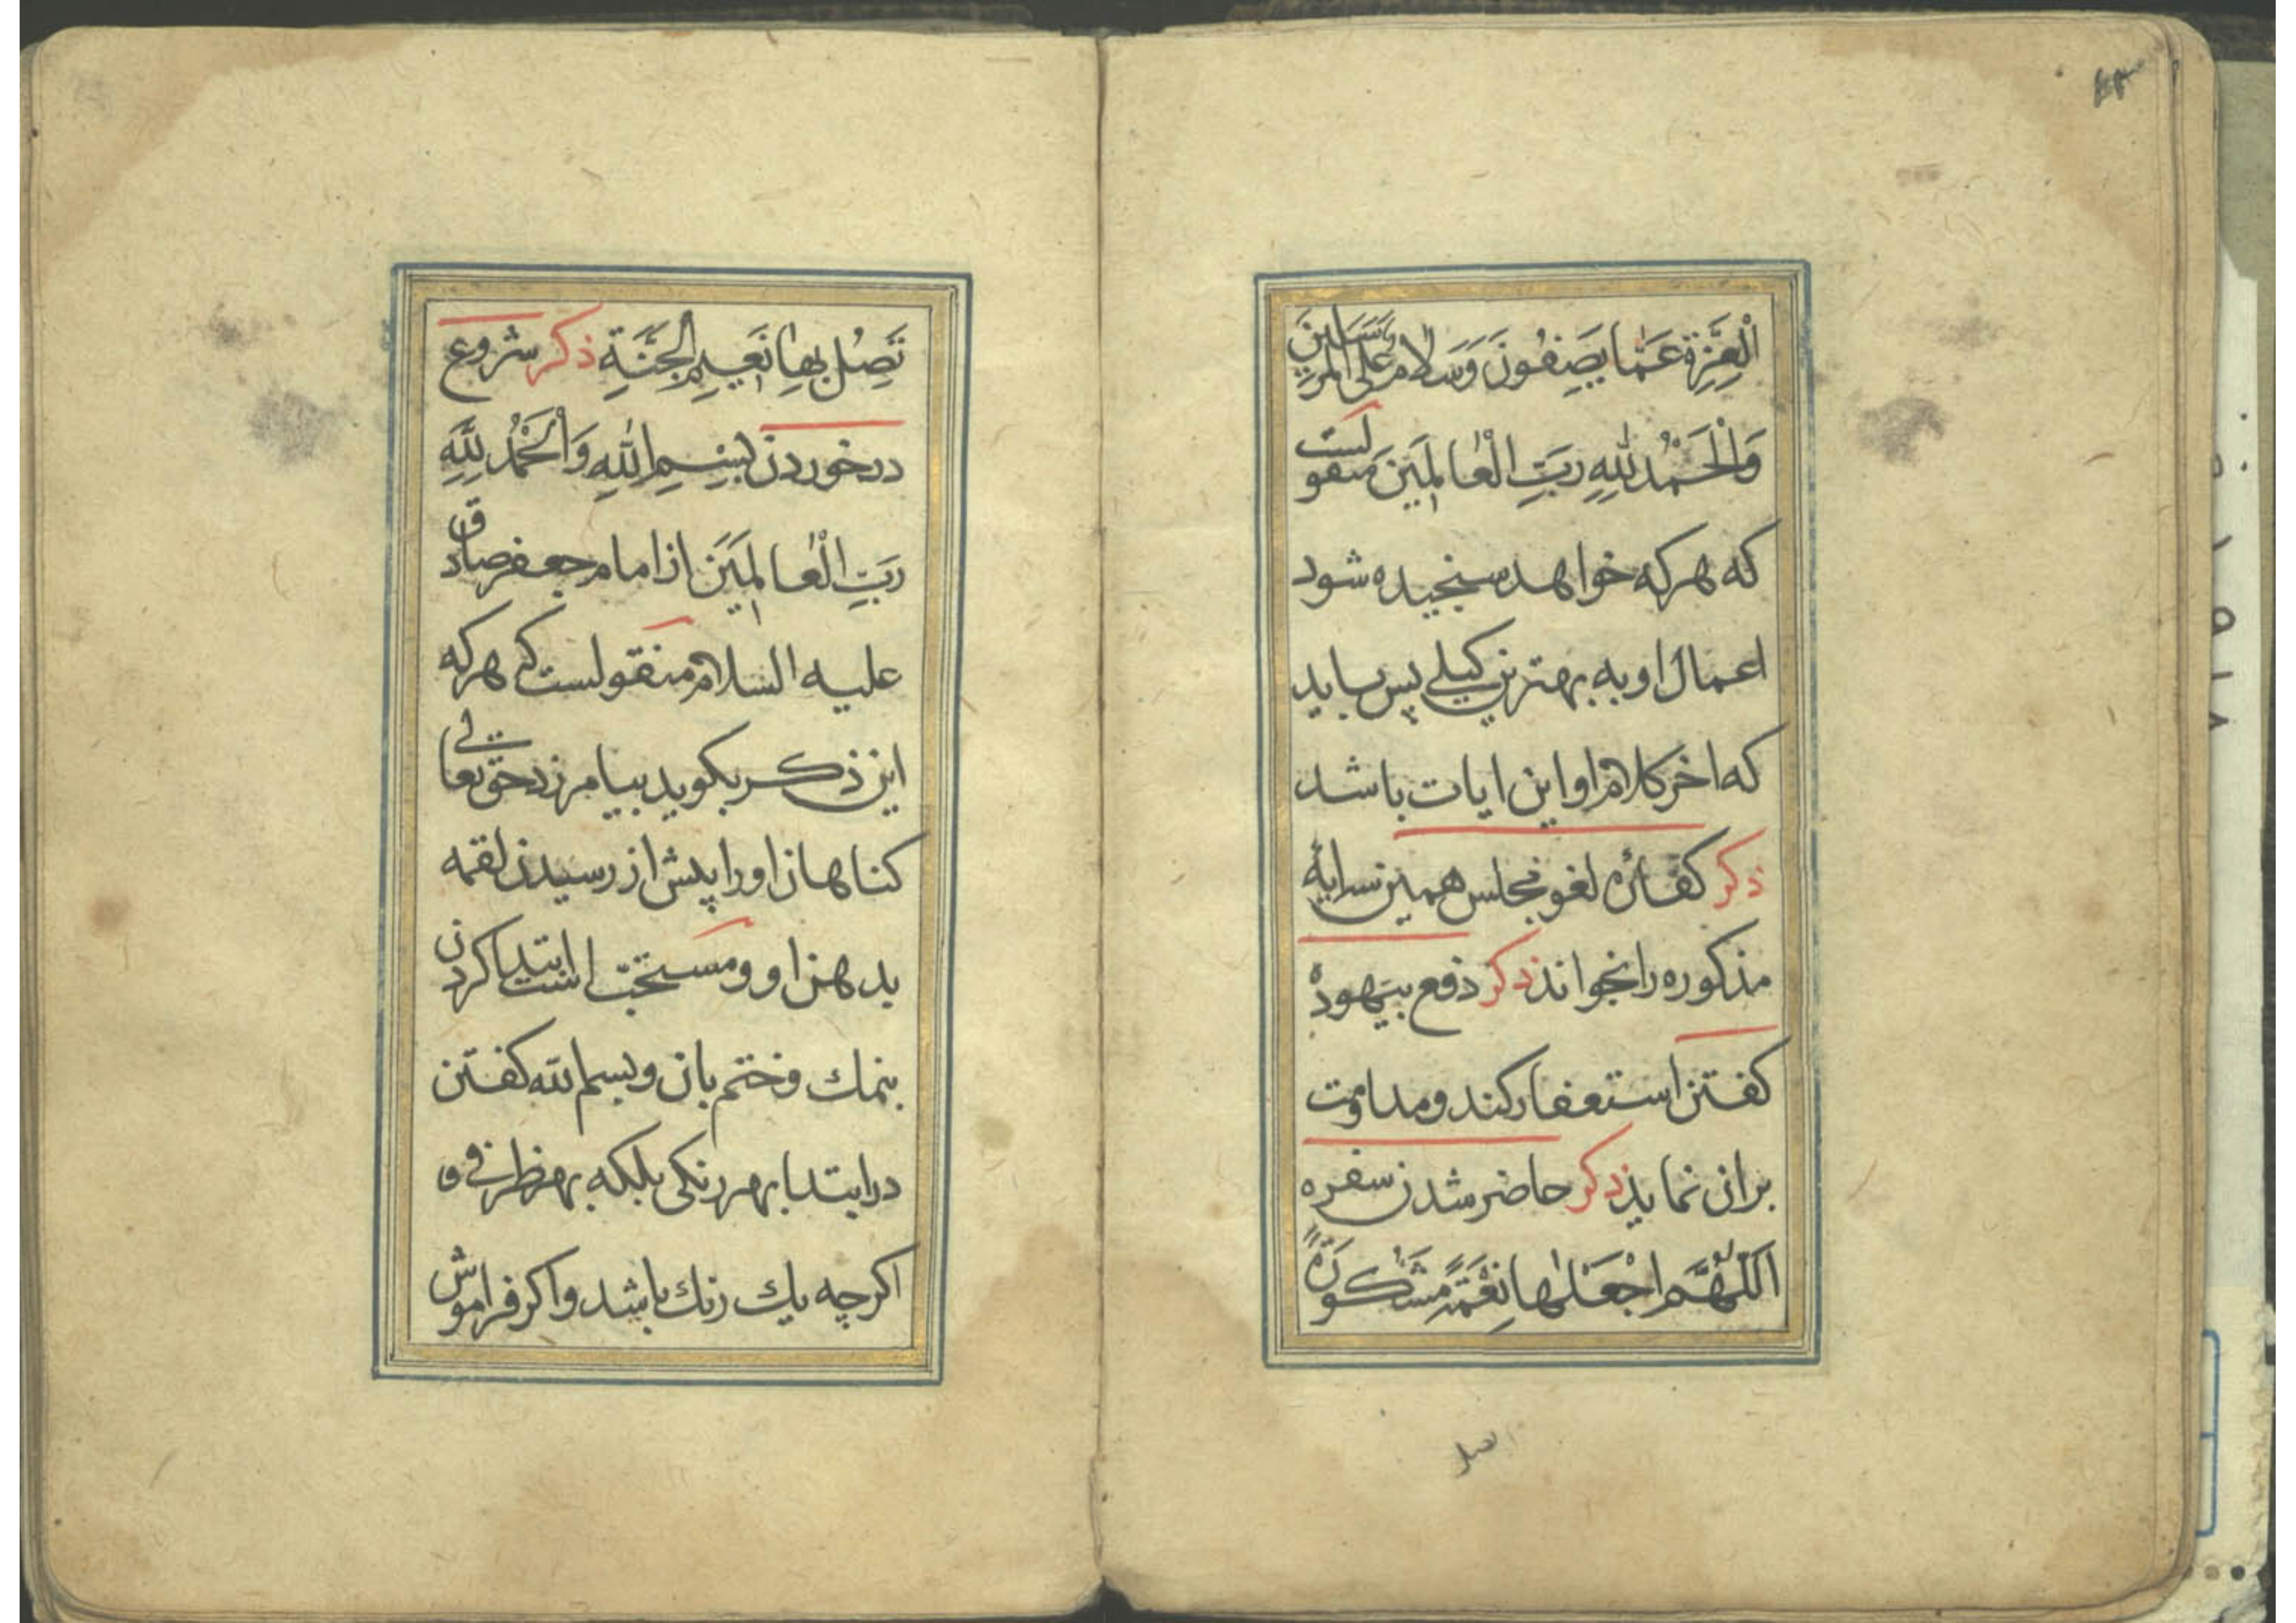 الْعِزَّةِ عَمَّا يَصِفُونَ وَسَلَامٌ عَلَى الْمُرْسَلِينَ
وَالْحَمْدُ لِلّٰهِ رَبِّ الْعَالَمِينَ منقولست
که هرکه خواهد سنجیده شود
اعمال او به بهترین کیلی پس باید
که اخر کلام او این ایات باشد
ذکر کفاره لغو مجلس همین سه ایه
مذکوره را بخواند ذکر دفع بیهوده
کفتن استغفار کند و مداومت
بران نماید ذکر حاضر شدن سفره
اَللّٰهُمَّ اجْعَلْهَا نِعْمَةً مَشْكُورَةً
تَصِلُ بِهَا نَعِيمِ الْجَنَّةِ ذکر شروع
در خوردن بِسْمِ اللّٰهِ وَالْحَمْدُ لِلّٰهِ
رَبِّ الْعَالَمِينَ از امام جعفر صادق
علیه السلام منقولست که هرکه
این ذکر بکوید بیامرزد حق تعالی
کناهان او را پیش از رسیدن لقمه
بدهن او و مستحب است ابتدا کردن
بنمک و ختم بان و بسم الله کفتن
در ابتدا بهر رنکی بلکه بهر ظرفی و
اکرچه یك رنك باشد و اکر فراموش